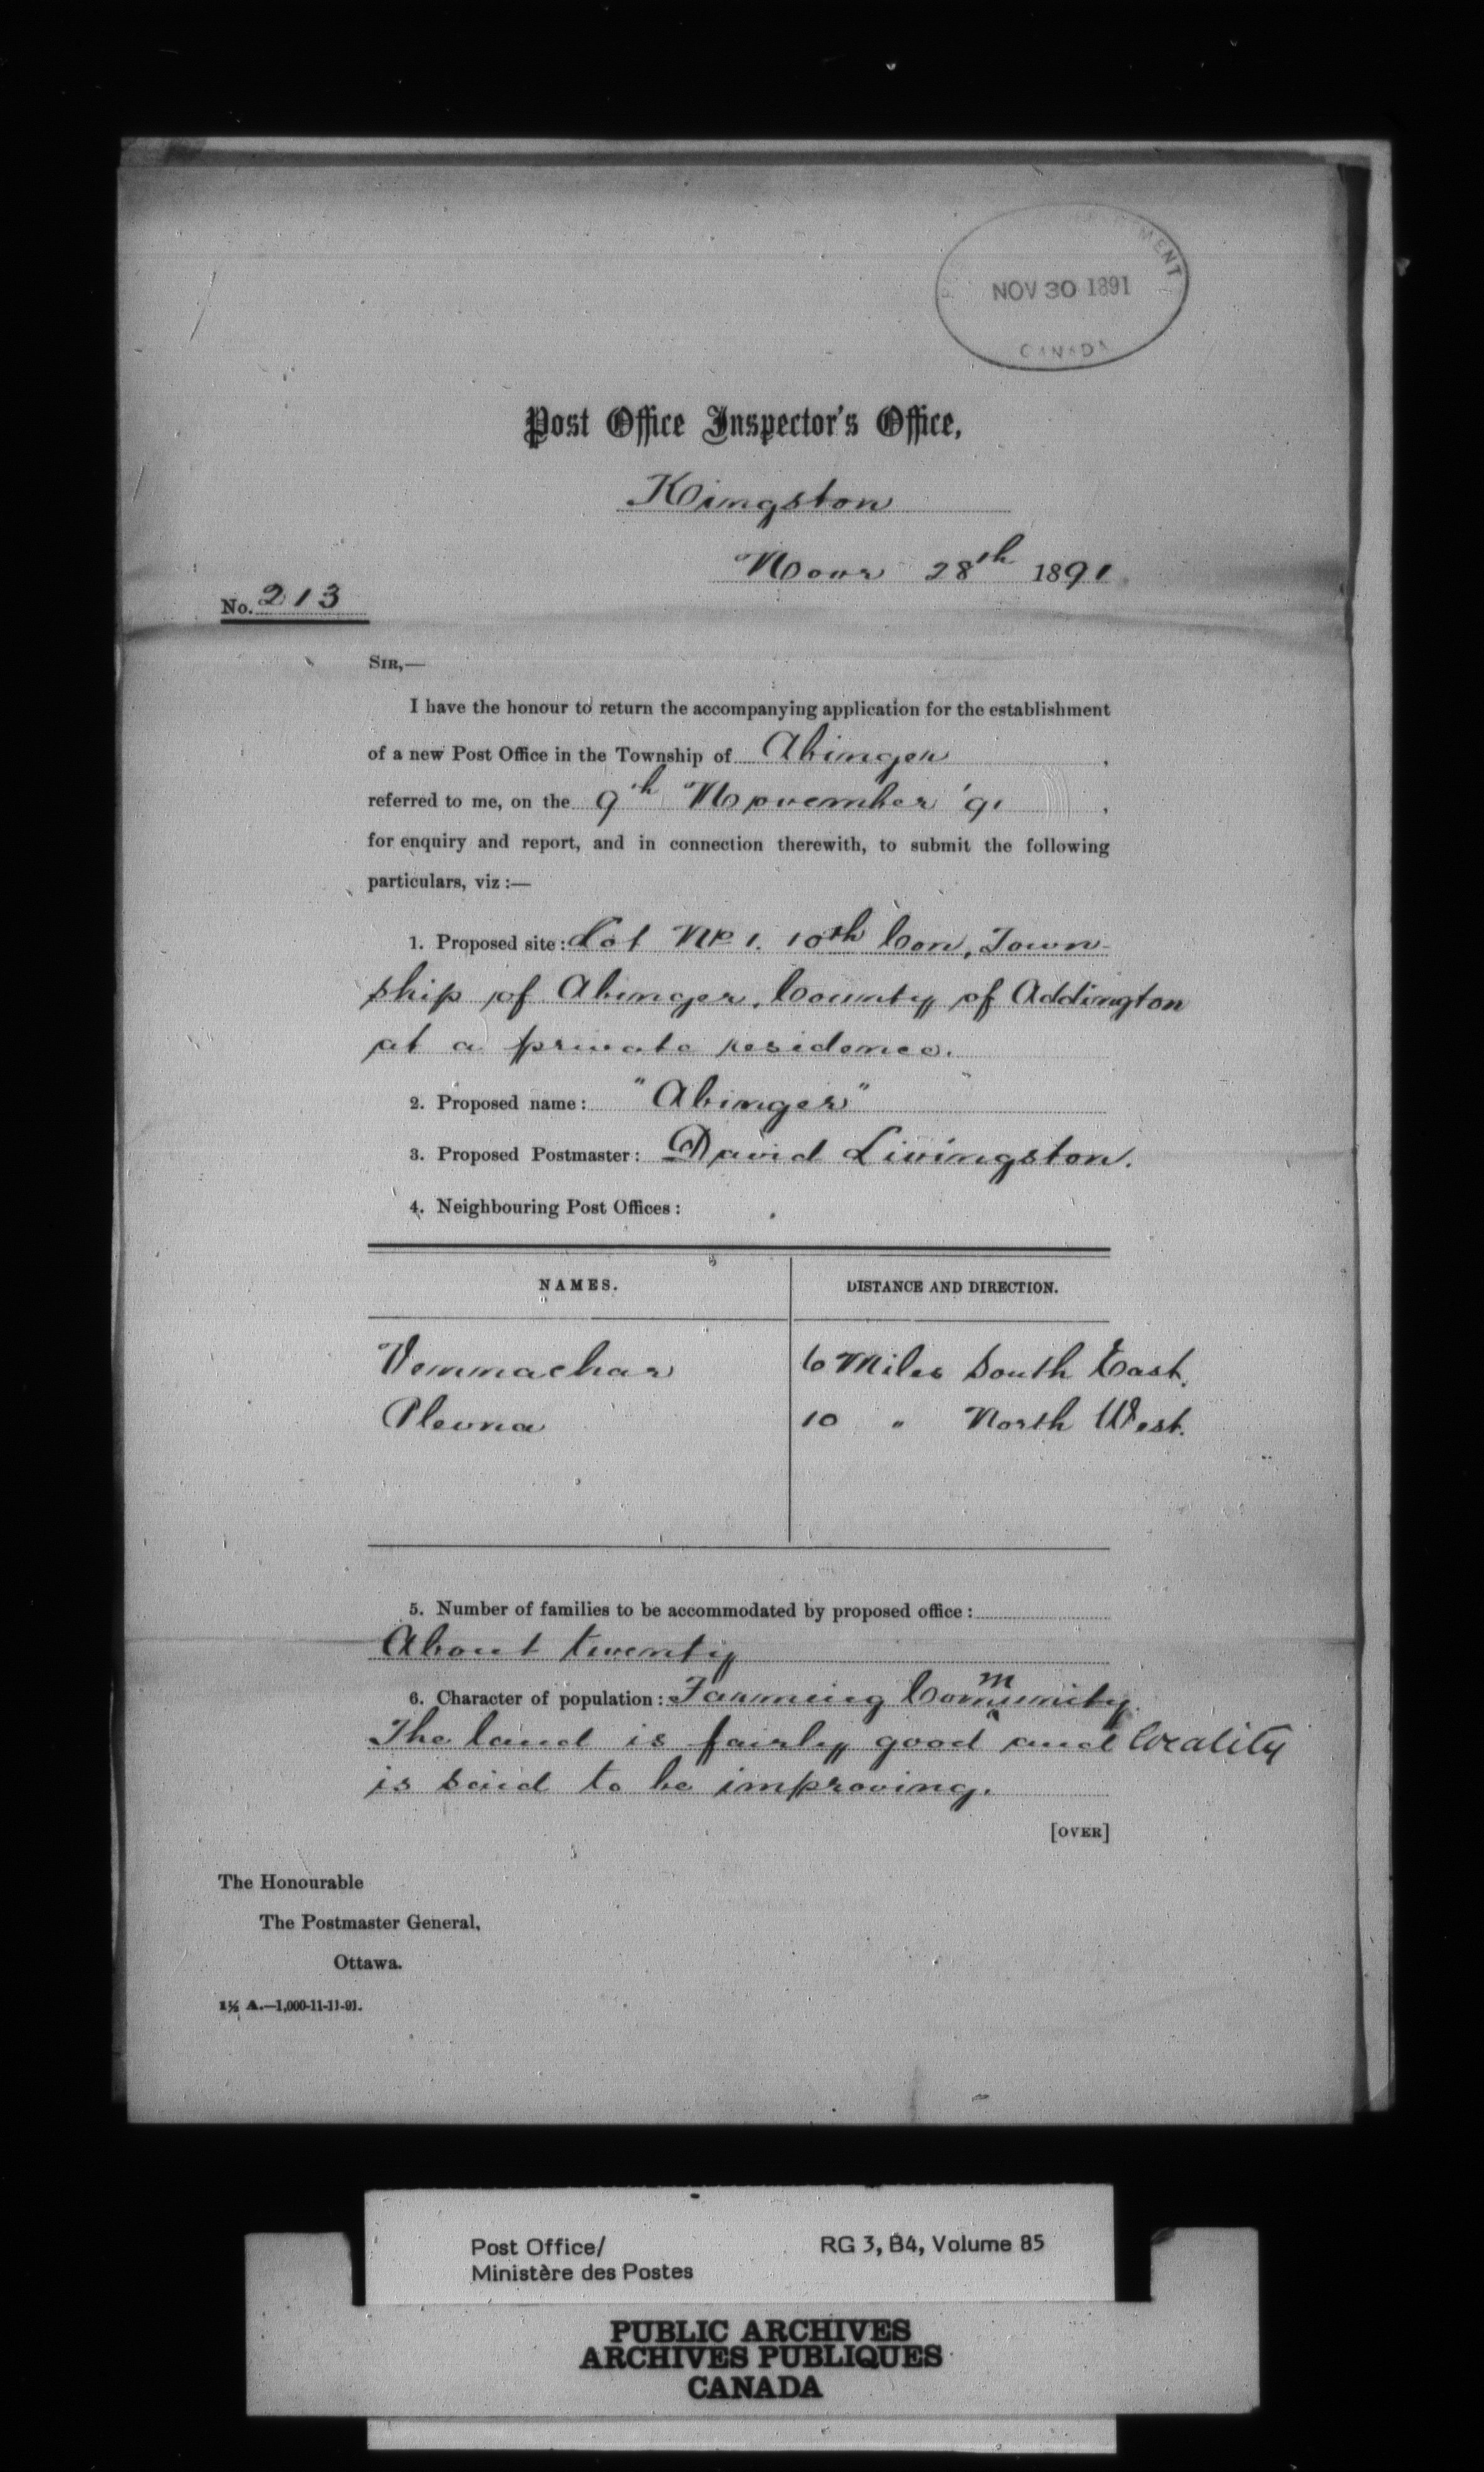 MENT
NOV 30 1891
CANADA
Post Office Inspector's Office,
Kingston
Novr 28th 1891
No. 213
SIR,—
I have the honour to return the accompanying application for the establishment
of a new Post Office in the Township of Abinger,
referred to me, on the 9th November '91,
for enquiry and report, and in connection therewith, to submit the following
particulars, viz :—
1. Proposed site: Lot No 1. 10th Con, Town-
ship of Abinger, County of Addington
at a private residence.
2. Proposed name: "Abinger"
3. Proposed Postmaster: David Livingston.
4. Neighbouring Post Offices:
NAMES. DISTANCE AND DIRECTION.
Vennachar 6 Miles South East.
Plevna 10 " North West.
5. Number of families to be accommodated by proposed office:
About twenty
6. Character of population: Farming Community.
The land is fairly good and locality
is said to be improving.
[OVER]
The Honourable
The Postmaster General,
Ottawa.
1½ A.—1,000-11-11-91.
Post Office/ RG 3, B4, Volume 85
Ministère des Postes
PUBLIC ARCHIVES
ARCHIVES PUBLIQUES
CANADA